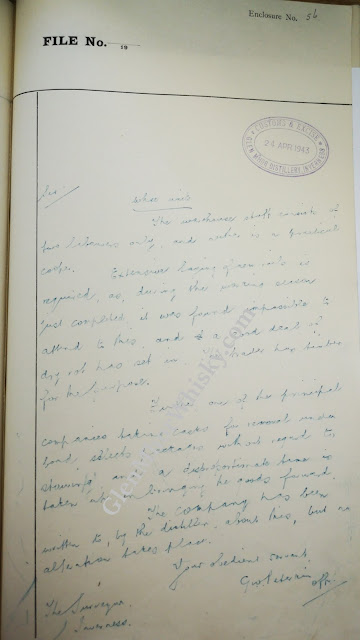 Enclosure No. 56
FILE No. 19
CUSTOMS & EXCISE
24 APR 1943
GLEN MHOR DISTILLERY INVERNESS
Sir,
The warehouse staff consists of
two labourers only, and neither is a practical
cooper. Extensive of is
required, as, during the season
just completed, it was found impossible to
attend to this, and a good deal of
dry rot has set in. trader has timber
for the purpose.
one of the principal
companies taking casks for removal under
bond, selects without regard to
stowing, and a disproportionate time is
taken up in bringing the casks forward.
The Company has been
written to, by the distiller, about this, but no
alteration takes place.
Your obedient servant
offr.
The Surveyor
Inverness.